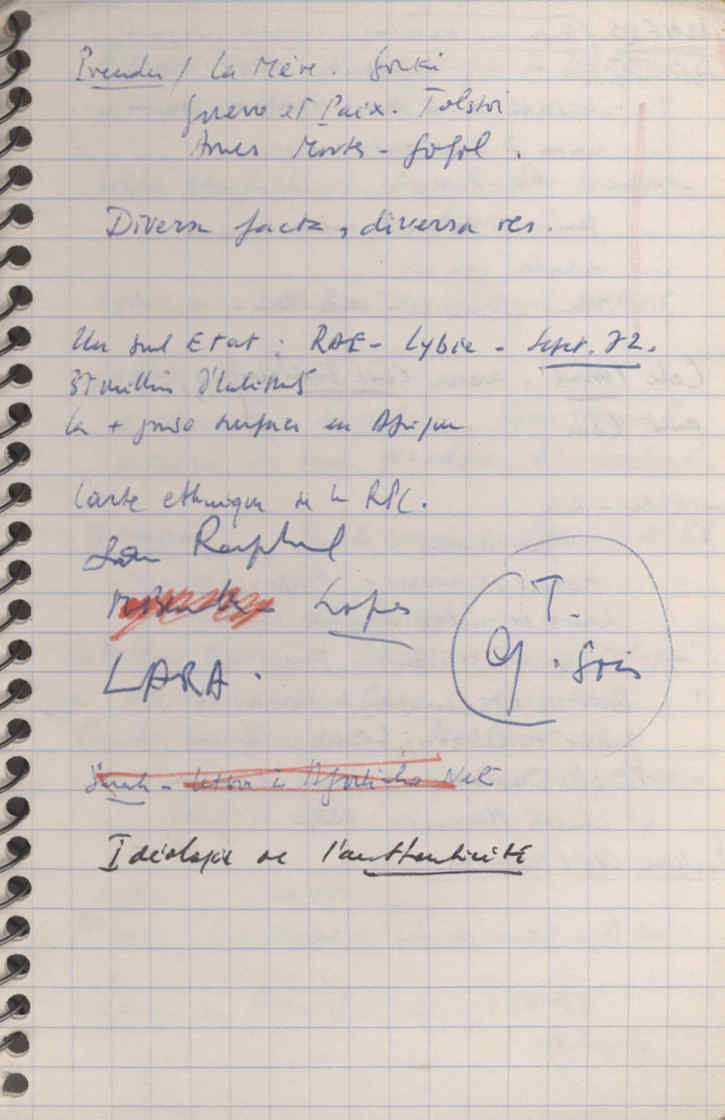 Prendre / La Mère. Gorki
Guerre et Paix. Tolstoi
Ames Mortes - Gogol.
Diversa facta, diversa res.
Un seul Etat : RAE - Lybie - Sept. 72.
37 millions d'habitants
La + grosse surface en Afrique
Carte ethnique de la RPC.
Raphael
Lopes
LARA.
T.
G. Gris
Lettre à Agostinho Neto
Idéologie de l'authenticité